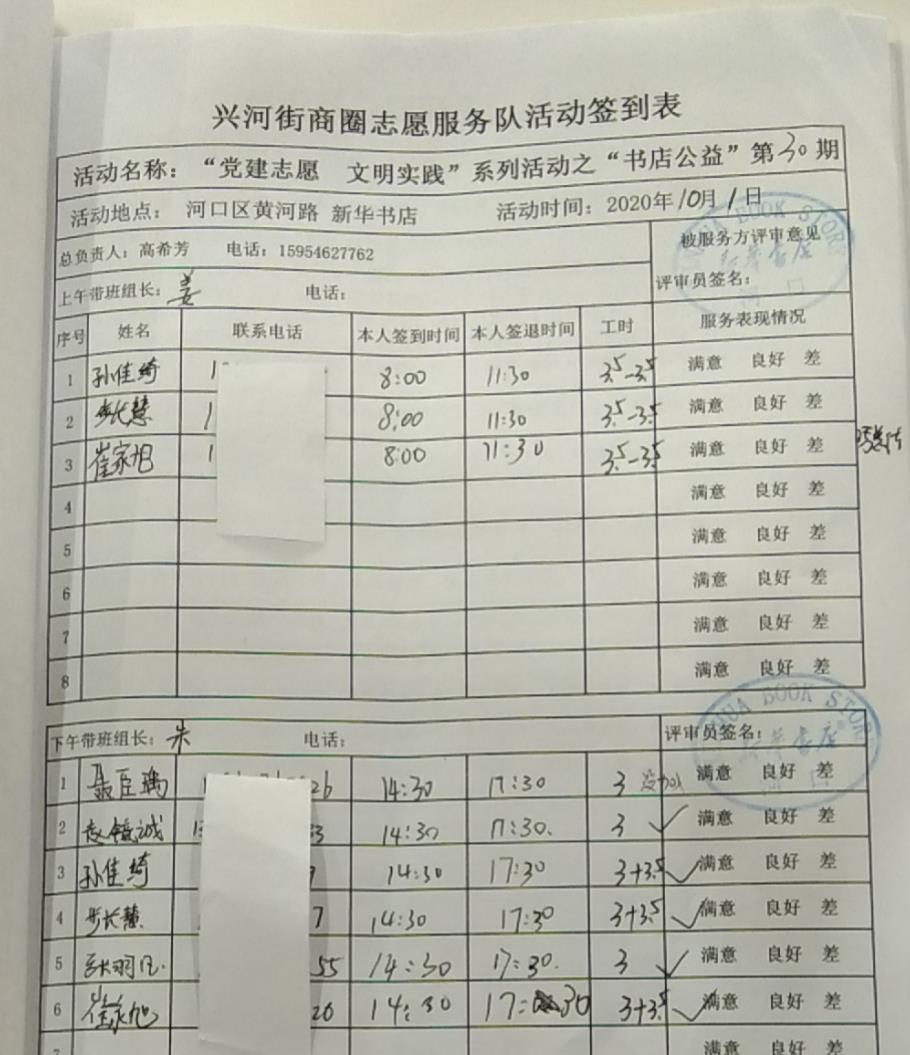 兴河街商圈志愿服务队活动签到表
活动名称：“党建志愿 文明实践”系列活动之“书店公益”第30期
活动地点： 河口区黄河路 新华书店 活动时间：2020年10月1日
总负责人：高希芳 电话：15954627762 被服务方评审意见
上午带班组长：姜 电话： 评审员签名：
序号 姓名 联系电话 本人签到时间 本人签退时间 工时 服务表现情况
1 孙佳绮 1 8:00 11:30 3.5-3.5 满意 良好 差
2 步长慧 1 8:00 11:30 3.5-3.5 满意 良好 差
3 崔家旭 1 8:00 11:30 3.5-3.5 满意 良好 差
4 满意 良好 差
5 满意 良好 差
6 满意 良好 差
7 满意 良好 差
8 满意 良好 差
下午带班组长：朱 电话： 评审员签名：
1 聂臣瑀 26 14:30 17:30 3 没加 满意 良好 差
2 诚 14:30 17:30. 3 满意 良好 差
3 孙佳绮 14:30 17:30 3+3.5 满意 良好 差
4 步长慧 7 14:30 17:30 3+3.5 满意 良好 差
5 张羽 55 14:30 17:30. 3 满意 良好 差
6 崔家旭 26 14:30 17:30 3+3.5 满意 良好 差
7 满意 良好 差
XINHUA BOOK STORE
新华书店
河口
XINHUA BOOK STORE
新华书店
河口